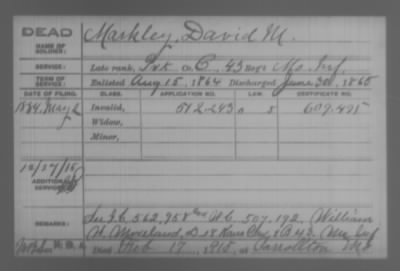 DEAD
NAME OF SOLDIER: Markley, David M.
SERVICE: Late rank, Pvt. Co. C, 43 Reg't Mo. Inf.
TERM OF SERVICE: Enlisted Aug. 15, 1864 Discharged June 30, 1865
DATE OF FILING. CLASS. APPLICATION NO. LAW. CERTIFICATE NO.
1884, May 2 Invalid, 512.243 609.495
Widow,
Minor,
ADDITIONAL SERVICE:
See I.C. 562,958 H.C. 507.192, William
REMARKS: H. Moreland, D 18 Kans Cav. & B 43. Mo. Inf
Died Feb 17, 1915, at Carrollton Mo.